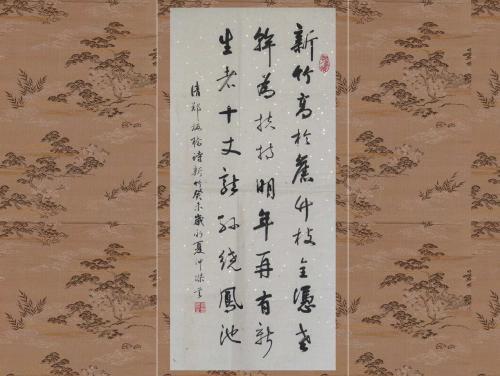 新竹高於舊竹枝全憑老
幹為扶持明年再有新
生者十丈龍孫繞鳳池
清鄭板橋詩新竹癸未歲初夏仲